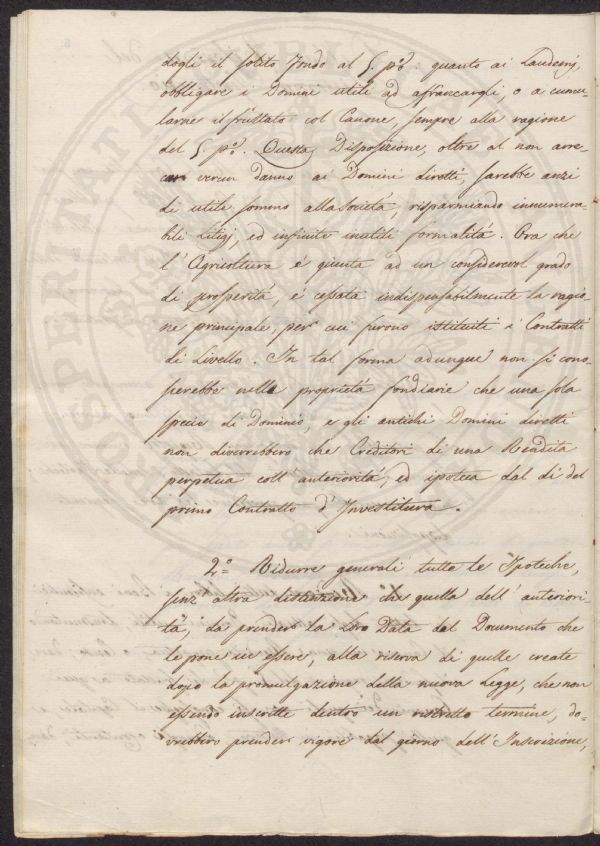 dogli il solito Fondo al 5. p%: quanto ai Laudemj,
obbligare i Domini utili ad affrancargli, o a cumu-
larne il fruttato col Canone, sempre alla ragione
del 5. p%. Questa Disposizione, oltre al non arre-
car verun danno ai Domini diretti, sarebbe anzi
di utile sommo alla società, risparmiando innumera-
bili Litigj, ed infinite inutili formalità. Ora che
l'Agricoltura è giunta ad un considerevol grado
di prosperità, è cessata indispensabilmente la ragio-
ne principale, per cui furono istituiti i Contratti
di Livello. In tal forma adunque non si cono-
scerebbe nelle proprietà fondiarie che una sola
specie di Dominio, e gli antichi Domini diretti
non diverrebbero che Creditori di una Rendita
perpetua coll'anteriorità, ed ipoteca dal dì del
primo Contratto d'Investitura.
2.° Ridurre generali tutte le Ipoteche,
senz'altra distinzione che quella dell'anteriori-
tà, da prender la loro Data dal Documento che
le pone in essere, alla riserva di quelle create
dopo la promulgazione della nuova Legge, che non
essendo inscritte dentro un ristretto termine, do-
vrebbero prender vigore dal giorno dell'Inscrizione,